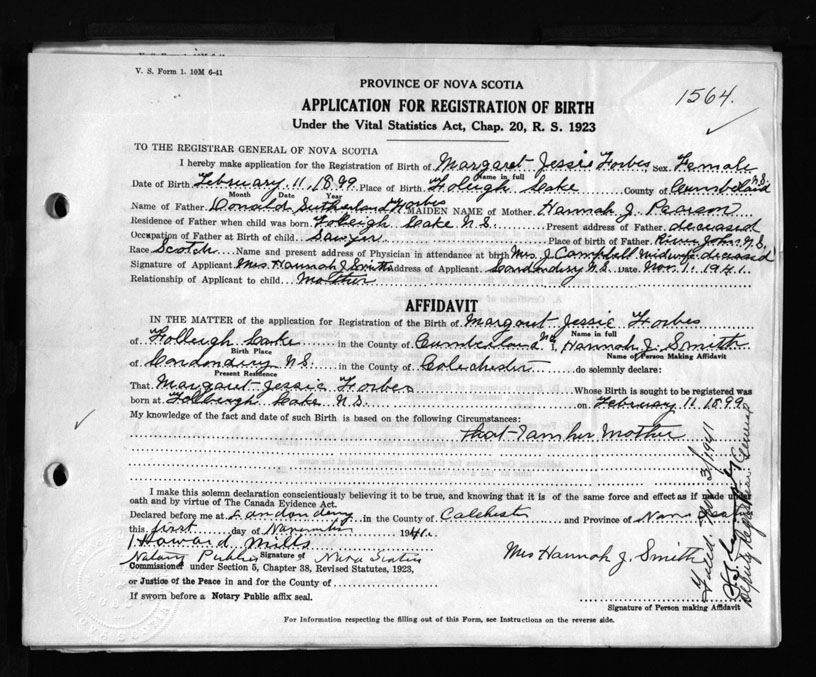 V. S. Form 1. 10M 6-41
PROVINCE OF NOVA SCOTIA
1564.
APPLICATION FOR REGISTRATION OF BIRTH
Under the Vital Statistics Act, Chap. 20, R. S. 1923
TO THE REGISTRAR GENERAL OF NOVA SCOTIA
I hereby make application for the Registration of Birth of Margaret Jessie Forbes Sex Female
Name in full
Date of Birth February 11, 1899 Place of Birth Foleigh Lake County of Cumberland N.S.
Month Date Year
Name of Father Donald Sutherland Forbes MAIDEN NAME of Mother Hannah J. Pearson
Residence of Father when child was born Foleigh Lake N.S. Present address of Father deceased
Occupation of Father at Birth of child Sawyer Place of birth of Father River John N.S.
Race Scotch Name and present address of Physician in attendance at birth Mrs. J Campbell Midwife deceased
Signature of Applicant Mrs Hannah J Smith Address of Applicant Londonderry N.S. Date Nov. 1. 1941.
Relationship of Applicant to child Mother
AFFIDAVIT
IN THE MATTER of the application for Registration of the Birth of Margaret Jessie Forbes
Name in full
of Folleigh Lake in the County of Cumberland N.S. I, Hannah J. Smith
Birth Place Name of Person Making Affidavit
of Londonderry N.S. in the County of Colchester do solemnly declare:
Present Residence
That Margaret Jessie Forbes Whose Birth is sought to be registered was
born at Folleigh Lake N.S. on February 11 1899
My knowledge of the fact and date of such Birth is based on the following Circumstances:
that I am her Mother
I make this solemn declaration conscientiously believing it to be true, and knowing that it is of the same force and effect as if made upon
oath and by virtue of The Canada Evidence Act.
Declared before me at Londonderry in the County of Colchester and Province of Nova Scotia
this first day of November 1941.
J. Howard Mills
Signature of
Notary Public Nova Scotia
Mrs Hannah J. Smith
Commissioned under Section 5, Chapter 38, Revised Statutes, 1923,
or Justice of the Peace in and for the County of
If sworn before a Notary Public affix seal.
Signature of Person making Affidavit
For Information respecting the filling out of this Form, see Instructions on the reverse side.
Filed Nov 3/1941
Deputy Registrar General
NOVA SCOTIA